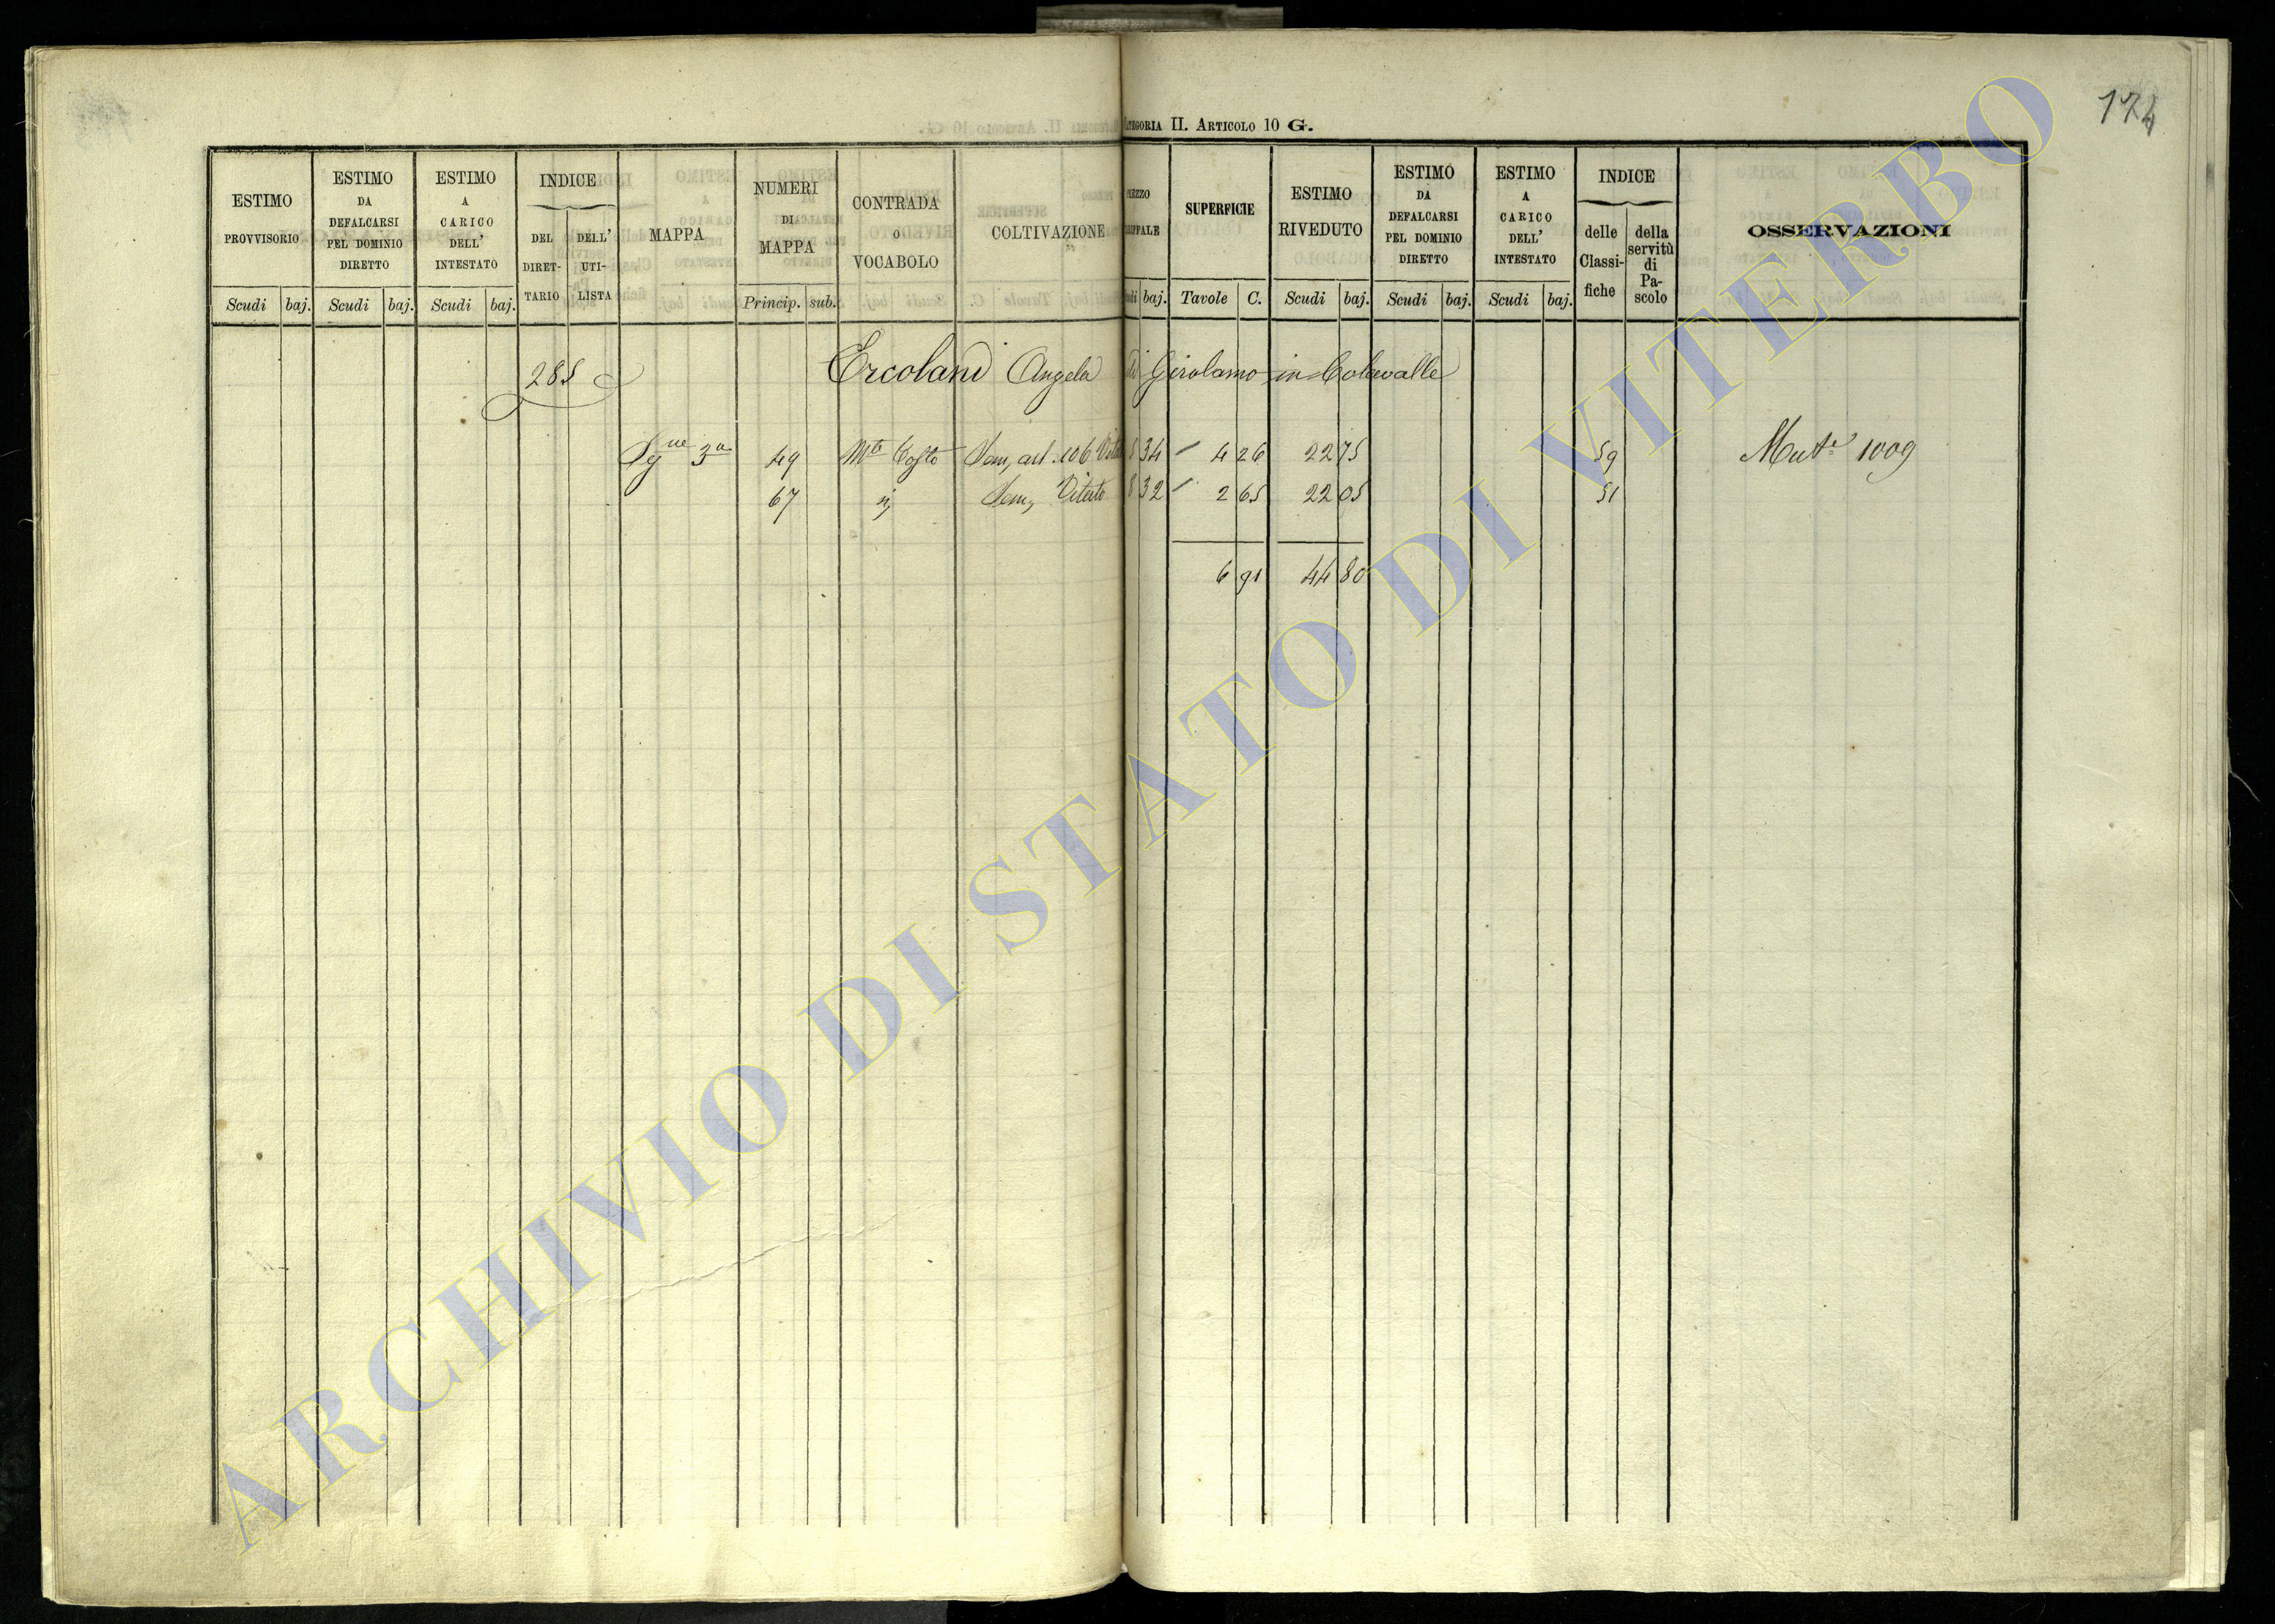 CATEGORIA II. ARTICOLO 10 G.
174
ESTIMO PROVVISORIO
ESTIMO DA DEFALCARSI PEL DOMINIO DIRETTO
ESTIMO A CARICO DELL' INTESTATO
INDICE
DEL DIRET-TARIO
DELL' UTI-LISTA
MAPPA
NUMERI DI MAPPA
CONTRADA O VOCABOLO
COLTIVAZIONE
SUPERFICIE
ESTIMO RIVEDUTO
ESTIMO DA DEFALCARSI PEL DOMINIO DIRETTO
ESTIMO A CARICO DELL' INTESTATO
INDICE
delle Classi-fiche
della servitù di Pa-scolo
OSSERVAZIONI
Scudi baj. Scudi baj. Scudi baj. Princip. sub. baj. Tavole C. Scudi baj. Scudi baj. Scudi baj.
285 Ercolani Angela di Girolamo in Colavalle
3a 49 Mte Sem, art. 106 5 34 4 26 22 75 59 Mut. 1009
67 Sem, Vitato 8 32 2 65 22 05 51
6 91 44 80
ARCHIVIO DI STATO DI VITERBO